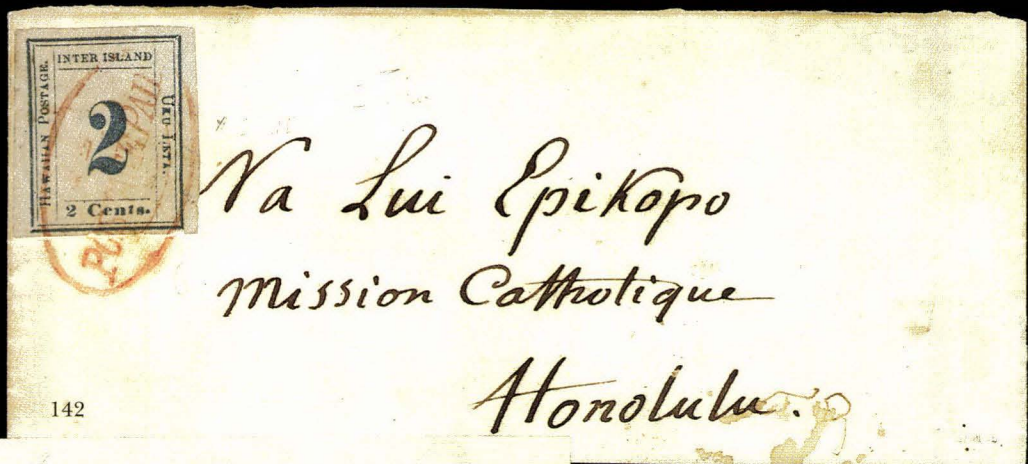 INTER ISLAND
HAWAIIAN POSTAGE.
2
UKU LETA.
2 Cents.
Na Lui Epikopo
Mission Catholique
Honolulu.
142